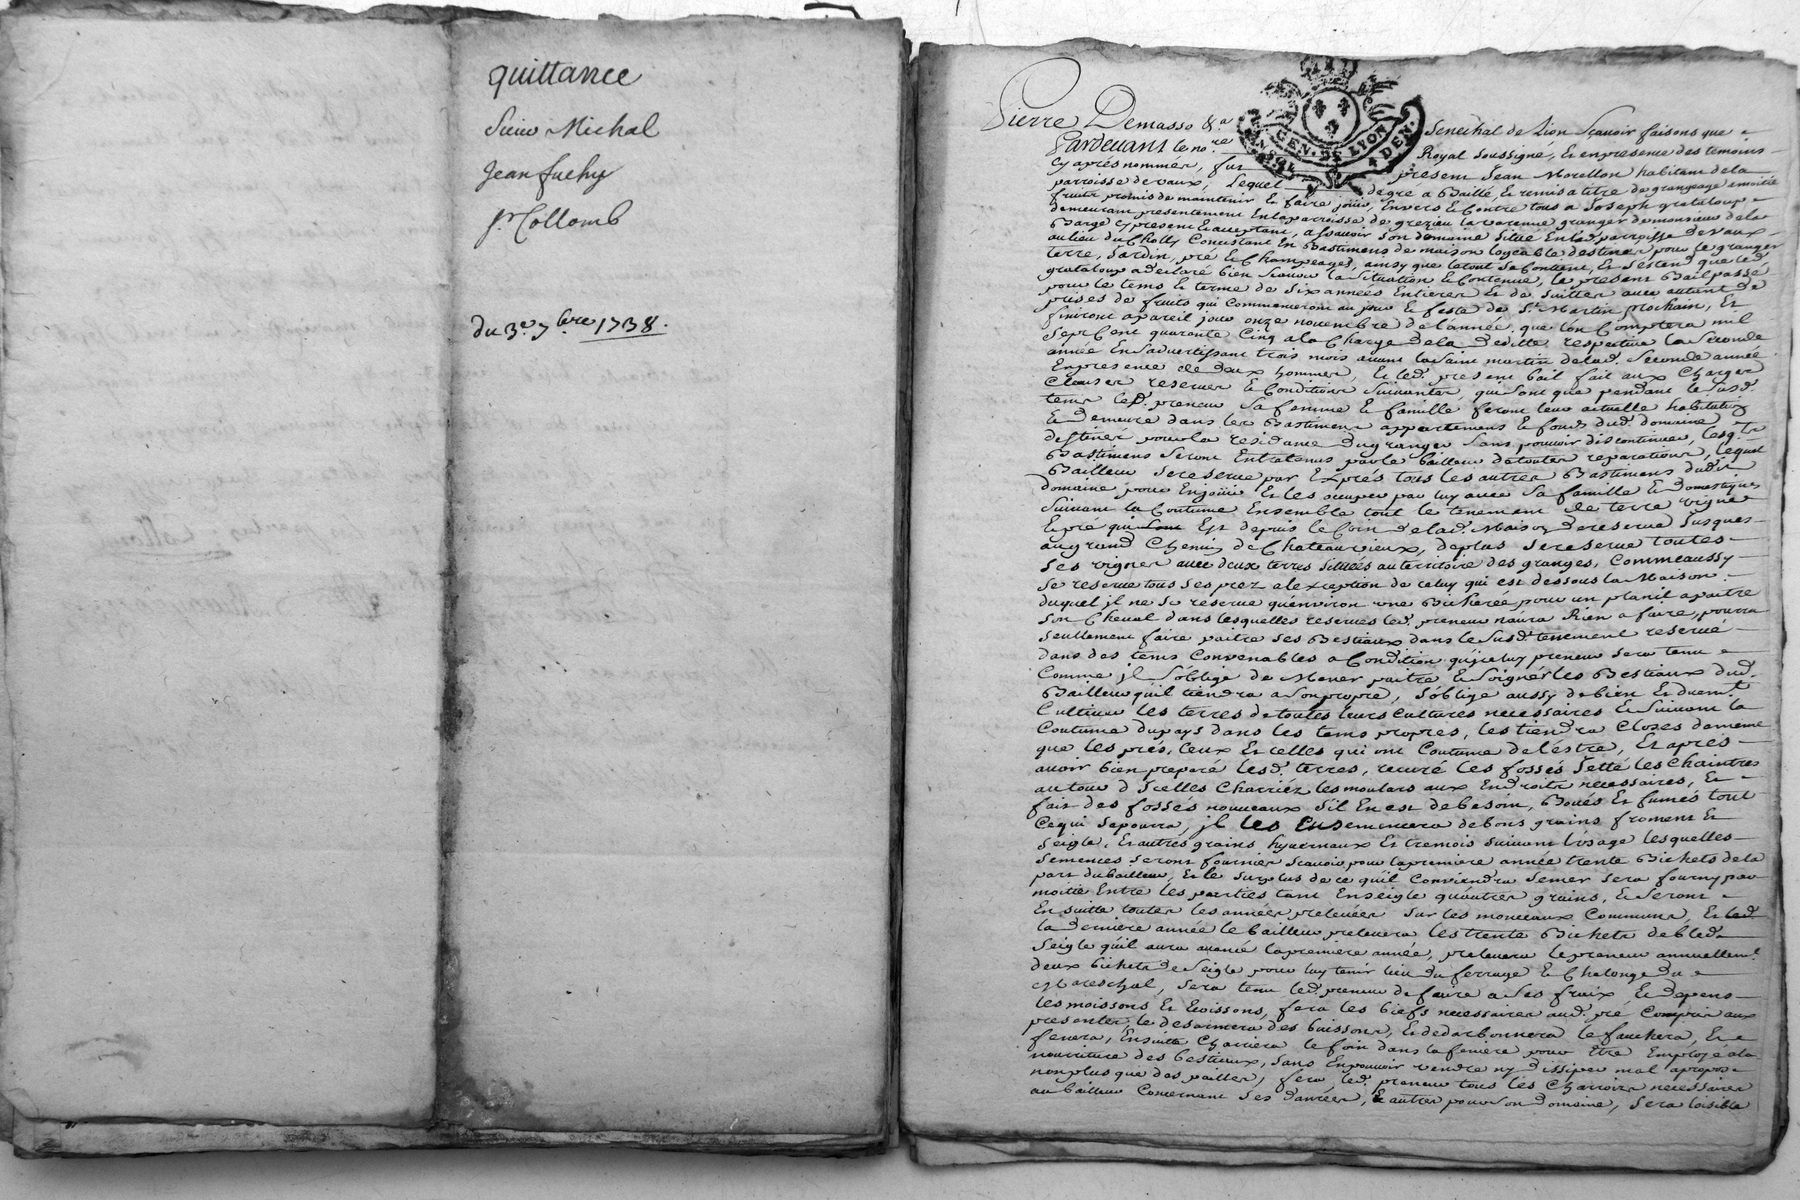 quittance
Sieur Michal
Jean fuchy
pr. Collomb
du 3e. 7bre 1738.
GEN. DE LYON
4 DEN.
Pierre Demasso &a Senechal de Lion Scavoir faisons que
Pardevant le nore Royal soussigné, et en presence des temoins
cy après nommés, fut present Jean Morellon habitant de la
parroisse de vaux, Lequel de gré a Baillé, et remis a titre de grangeage a moitié
fruits promis de maintenir et faire jouir, Envers et Contre tous a Joseph grataloup
demeurant presentement En la parroisse de grezieu la varenne granger de monsieur de la
Barge cy present et acceptant, a Scavoir son domaine situé En lad. parroisse de vaux
au lieu du Cholly Consistant En Bastimens de maison logeable destinés pour le granger
terre, Jardin, pré et Champeages, ainsy que le tout se Contient, et s'estend que led.
grataloup a declaré bien scavoir la situation et Contenue, le present Bail passé
pour le tems et terme de six années Entieres et de suittes avec autant de
prises de fruits qui Commenceront au jour et feste de St. Martin prochain, et
finiront a pareil jour onze novembre de l'année que l'on Comptera mil
Sept Cent quarante Cinq a la Charge de la deditte respective la seconde
année En s'avertissant trois mois avant la saint martin de lad. seconde année
En presence de deux hommes, et led. present bail fait aux Charges
Clauses reserves et Conditions suivantes, qui sont que pendant le susd.
tems led. preneur sa femme et famille feront leur actuelle habitation
et demeure dans les Bastimens appartemens et fonds dud. domaine
destinés pour la residance du granger sans pouvoir discontinuer, lesq.
Bastimens seront Entretenus par le bailleur de toutes reparations, lequel
Bailleur se reserve par Exprès tous les autres Bastimens dudit
domaine pour En jouir et les occuper par luy avec sa famille et domestiques
suivant la Coutume Ensemble tout le tenement de terre vigne
et pré qui sont Est depuis le Coin de lad. Maison de reserve Jusques
au grand Chemin de Chateauvieux, de plus se reserve toutes
ses vignes avec deux terres situées au territoire des granges, Comme aussy
se reserve tous ses prez a l'exception de celuy qui est dessous la Maison
duquel jl ne se reserve qu'environ une Bicherée pour un planil a paitre
son Cheval dans lesquelles reserves led. preneur n'aura Rien a faire, pourra
seullement faire paitre ses Bestiaux dans le susd. tenement reservé
dans des tems Convenables a Condition qu'jceluy preneur sera tenu
Comme jl s'oblige de Mener paitre et soigner les Bestiaux dud.
Bailleur qu'il tiendra a son propre, s'oblige aussy de bien et duemt.
Cultiver les terres de toutes leurs cultures necessaires et suivant la
Coutume du pays dans les tems propres, les tiendra Closes de meme
que les prés, Ceux et celles qui ont Coutume de l'estre, Et après
avoir bien preparé lesd. terres, recuré les fossés Jetté les Chaintres
autour d'Jcelles Charriéz les moulars aux Endroits necessaires, et
fait des fossés nouveaux s'il En est de besoin, Boués et fumés tout
Ce qui se pourra, jl les ensemencera de bons grains froment et
seigle, et autres grains hyvernaux et tremois suivant l'usage lesquelles
semences seront fournies scavoir pour la premiere année trente Bichets de la
part du bailleur, et le surplus de ce qu'il Conviendra semer sera fourny par
moitié Entre les parties tant En seigle qu'autres grains, et seront
En suitte toutes les années prelevées sur les monceaux Communs, et led.
la derniere année le bailleur prelevera les trente Bichets de bled
seigle qu'il aura avancé la premiere année, prelevera le preneur annuellemt.
deux bichets de seigle pour luy tenir lieu du ferrage et Chalonge du
Mareschal, sera tenu led. preneur de faire a ses fraix et depens
les moissons et Eeissons, fera les biefs necessaires aud. pré Compris aux
presentes, le desarmera des buissons, et dedarbonnera le fauchera, et
fenera, Ensuitte Charriera le foin dans la feniere pour Etre Employé a la
nourriture des bestiaux, sans En pouvoir vendre ny dissiper mal apropos
non plus que des pailles, fera led. preneur tous les Charrois necessaires
au bailleur Concernant ses danrées, et autres pour son domaine, sera loisible